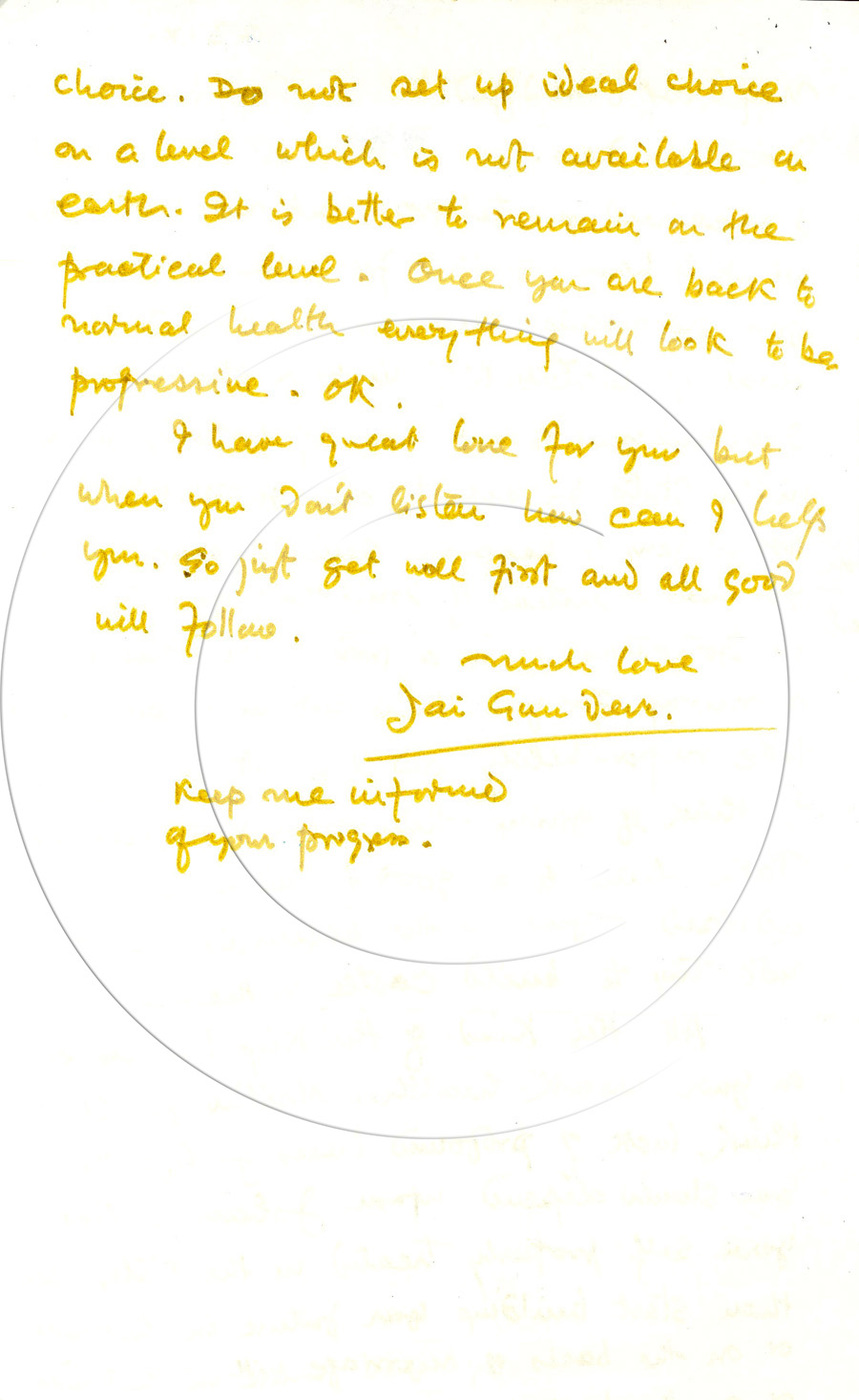 choice. Do not set up ideal choice
on a level which is not available on
earth. It is better to remain on the
practical level. Once you are back to
normal health everything will look to be
progressive. OK.
I have great love for you but
when you don't listen how can I help
you. So just get well first and all good
will follow.
much love
Jai Guru Dev.
Keep me informed
of your progress.